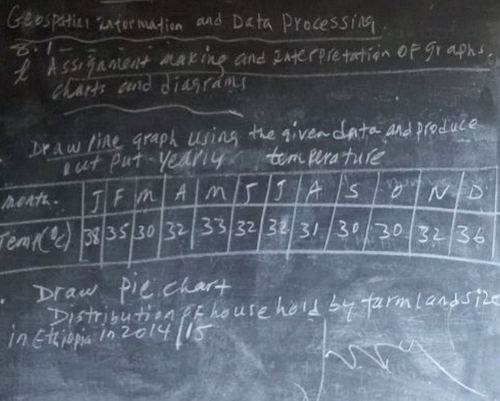 Geospatial information and Data Processing
8.1
& Assignment making and interpretation OF graphs,
charts and diagrams
Draw line graph using the given data and produce
out put yearly temperature
month. J F M A M J J A S O N D
Temp(°c) 38 35 30 32 33 32 32 31 30 30 32 36
Draw pie chart
Distribution of household by farm land size
in Ethiopia in 2014/15